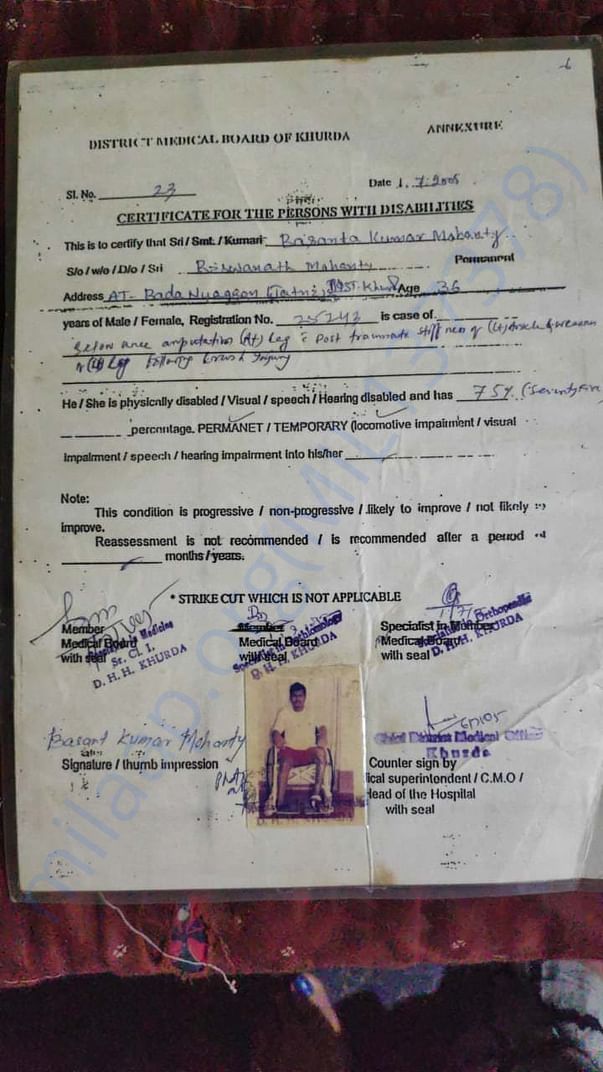 ANNEXURE
DISTRICT MEDICAL BOARD OF KHURDA
Sl. No. 23
Date 1.7.2005
CERTIFICATE FOR THE PERSONS WITH DISABILITIES
This is to certify that Sri / Smt. / Kumari Basanta Kumar Mohanty
S/o / w/o / D/o / Sri Biswanath Mohanty Permanent
Address AT- Bada Nuagaon Dist-Khurda Age 36
years of Male / Female, Registration No. 25242 is case of
Below knee amputation (Rt) Leg c Post traumatic stiffness of (Lt) &
of (Lt) Leg following crush Injury
He / She is physically disabled / Visual / speech / Hearing disabled and has 75% (Seventy Five
percentage. PERMANET / TEMPORARY (locomotive impairment / visual
impairment / speech / hearing impairment into his/her
Note:
This condition is progressive / non-progressive / likely to improve / not likely
improve.
Reassessment is not recommended / is recommended after a period
months / years.
* STRIKE CUT WHICH IS NOT APPLICABLE
Member
Medical Board
with seal
Medicine
Sr. Cl. I.
D. H. H. KHURDA
Member
Medical Board
with seal
D. H. H. KHURDA
Specialist in Member
Medical Board
with seal
Orthopaedic
D. H. H. KHURDA
Basant Kumar Mohanty
Signature / thumb impression
D. H. H. KHURDA
Chief District Medical Officer
Khurda
Counter sign by
ical superintendent / C.M.O /
Head of the Hospital
with seal
milaap.org(MIL1373378)